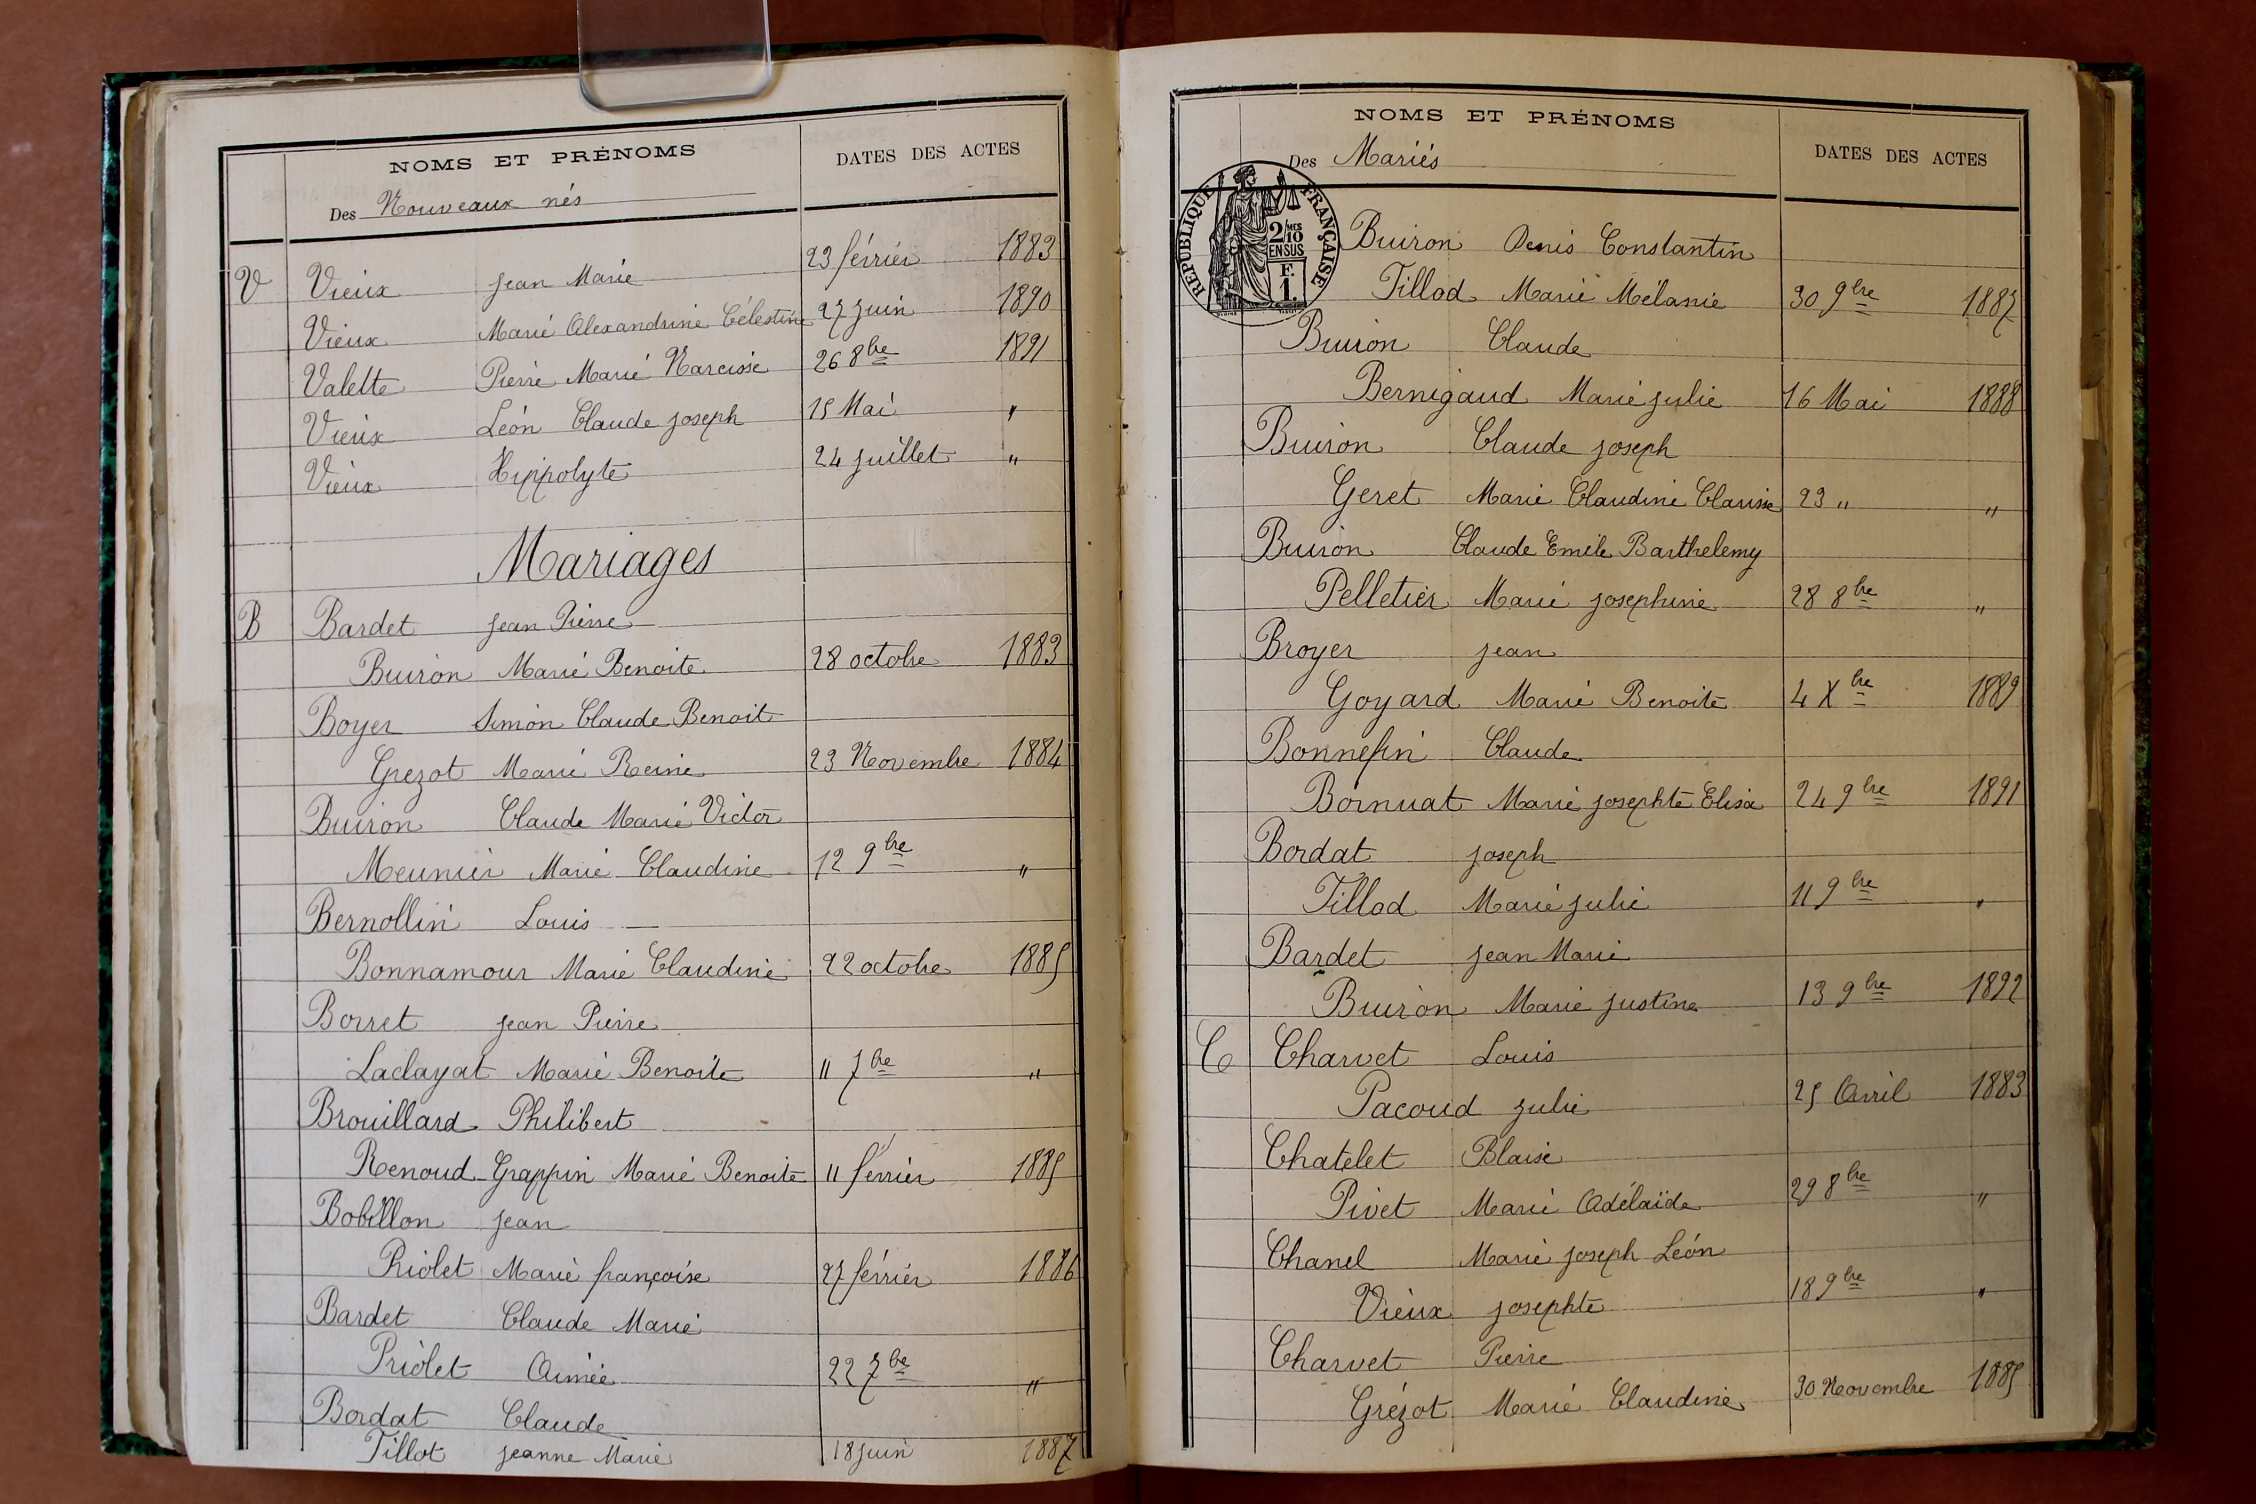 NOMS ET PRÉNOMS
DATES DES ACTES
Des Nouveaux nés
V Vieux Jean Marie 23 février 1883
Vieux Marie Alexandrine Célestine 27 juin 1890
Valette Pierre Marie Narcisse 26 8bre 1891
Vieux Léon Claude Joseph 15 Mai "
Vieux Hippolyte 24 juillet "
Mariages
B Bardet Jean Pierre
Buiron Marie Benoite 28 octobre 1883
Boyer Simon Claude Benoit
Grezot Marie Reine 23 Novembre 1884
Buiron Claude Marie Victor
Meunier Marie Claudine 12 9bre "
Bernollin Louis
Bonnamour Marie Claudine 22 octobre 1885
Borret Jean Pierre
Laclayat Marie Benoite 11 7bre "
Brouillard Philibert
Renoud-Grappin Marie Benoite 11 février 1885
Bobillon Jean
Priolet Marie françoise 27 février 1886
Bardet Claude Marie
Priolet Aimée 22 7bre "
Bordat Claude
Tillot Jeanne Marie 18 juin 1887
NOMS ET PRÉNOMS
DATES DES ACTES
Des Mariés
RÉPUBLIQUE FRANÇAISE
2/10 MES
EN SUS
F.
1.
Buiron Denis Constantin
Tillod Marie Mélanie 30 9bre 1887
Buiron Claude
Bernigaud Marie Julie 16 Mai 1888
Buiron Claude Joseph
Geret Marie Claudine Clarisse 23 " "
Buiron Claude Emile Barthelemy
Pelletier Marie Josephine 28 8bre "
Broyer Jean
Goyard Marie Benoite 4 Xbre 1889
Bonnefin Claude
Bornuat Marie Josephte Elisa 24 9bre 1891
Bordat Joseph
Tillod Marie Julie 11 9bre "
Bardet Jean Marie
Buiron Marie Justine 13 9bre 1892
C Charvet Louis
Pacoud Julie 25 Avril 1883
Chatelet Blaise
Pivet Marie Adélaïde 29 8bre "
Chanel Marie Joseph Léon
Vieux Josephte 18 9bre "
Charvet Pierre
Grézot Marie Claudine 30 Novembre 1885